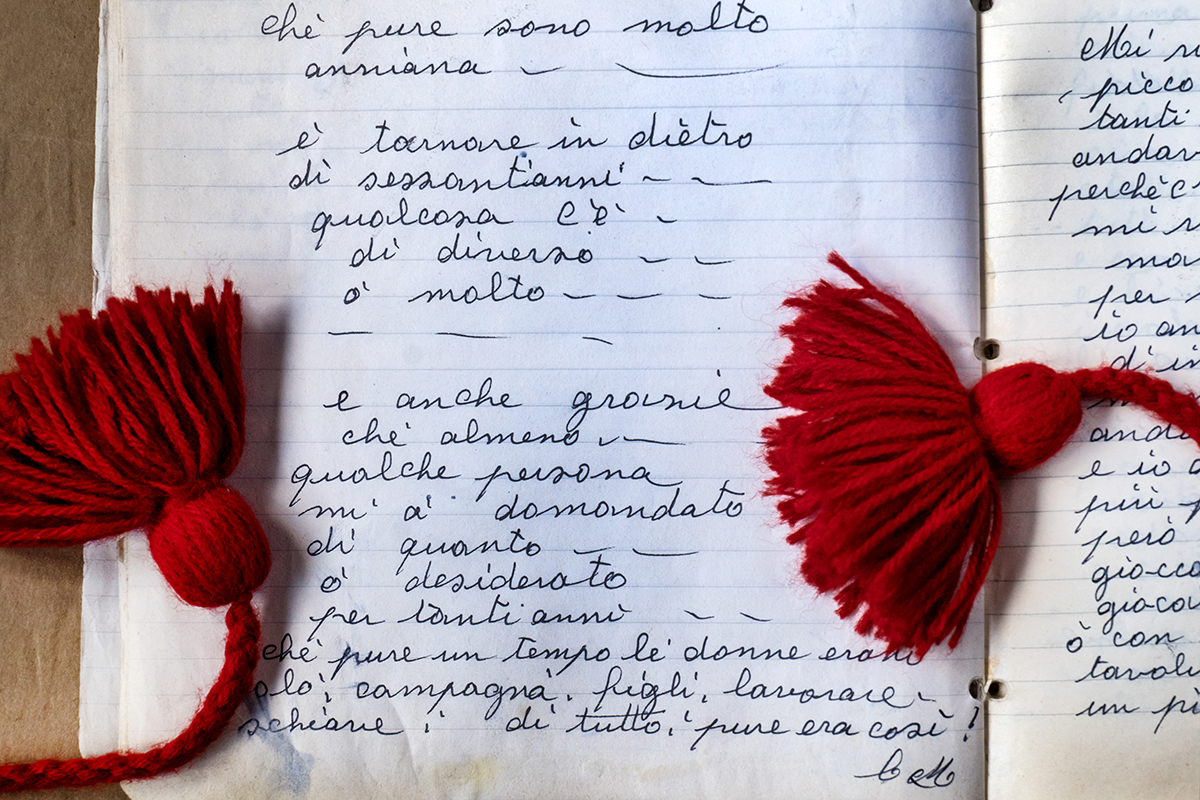 chè pure sono molto
anniana
è tornare in diètro
dì sessant'anni
qualcosa c'è
dì diverso
ò molto
e anche grazie
chè almeno
qualche persona
mi à domandato
dì quanto
ò desiderato
per tanti anni
chè pure un tempo lè donne erano
solo, campagna, figli, lavorare
schiave di tutto, pure era così!
Mi
picco
tanti
andav
perchè c
mi
ma
per
io an
di in
anda
e io
più
però
giocca
giocav
ò con
tavoli
un pi